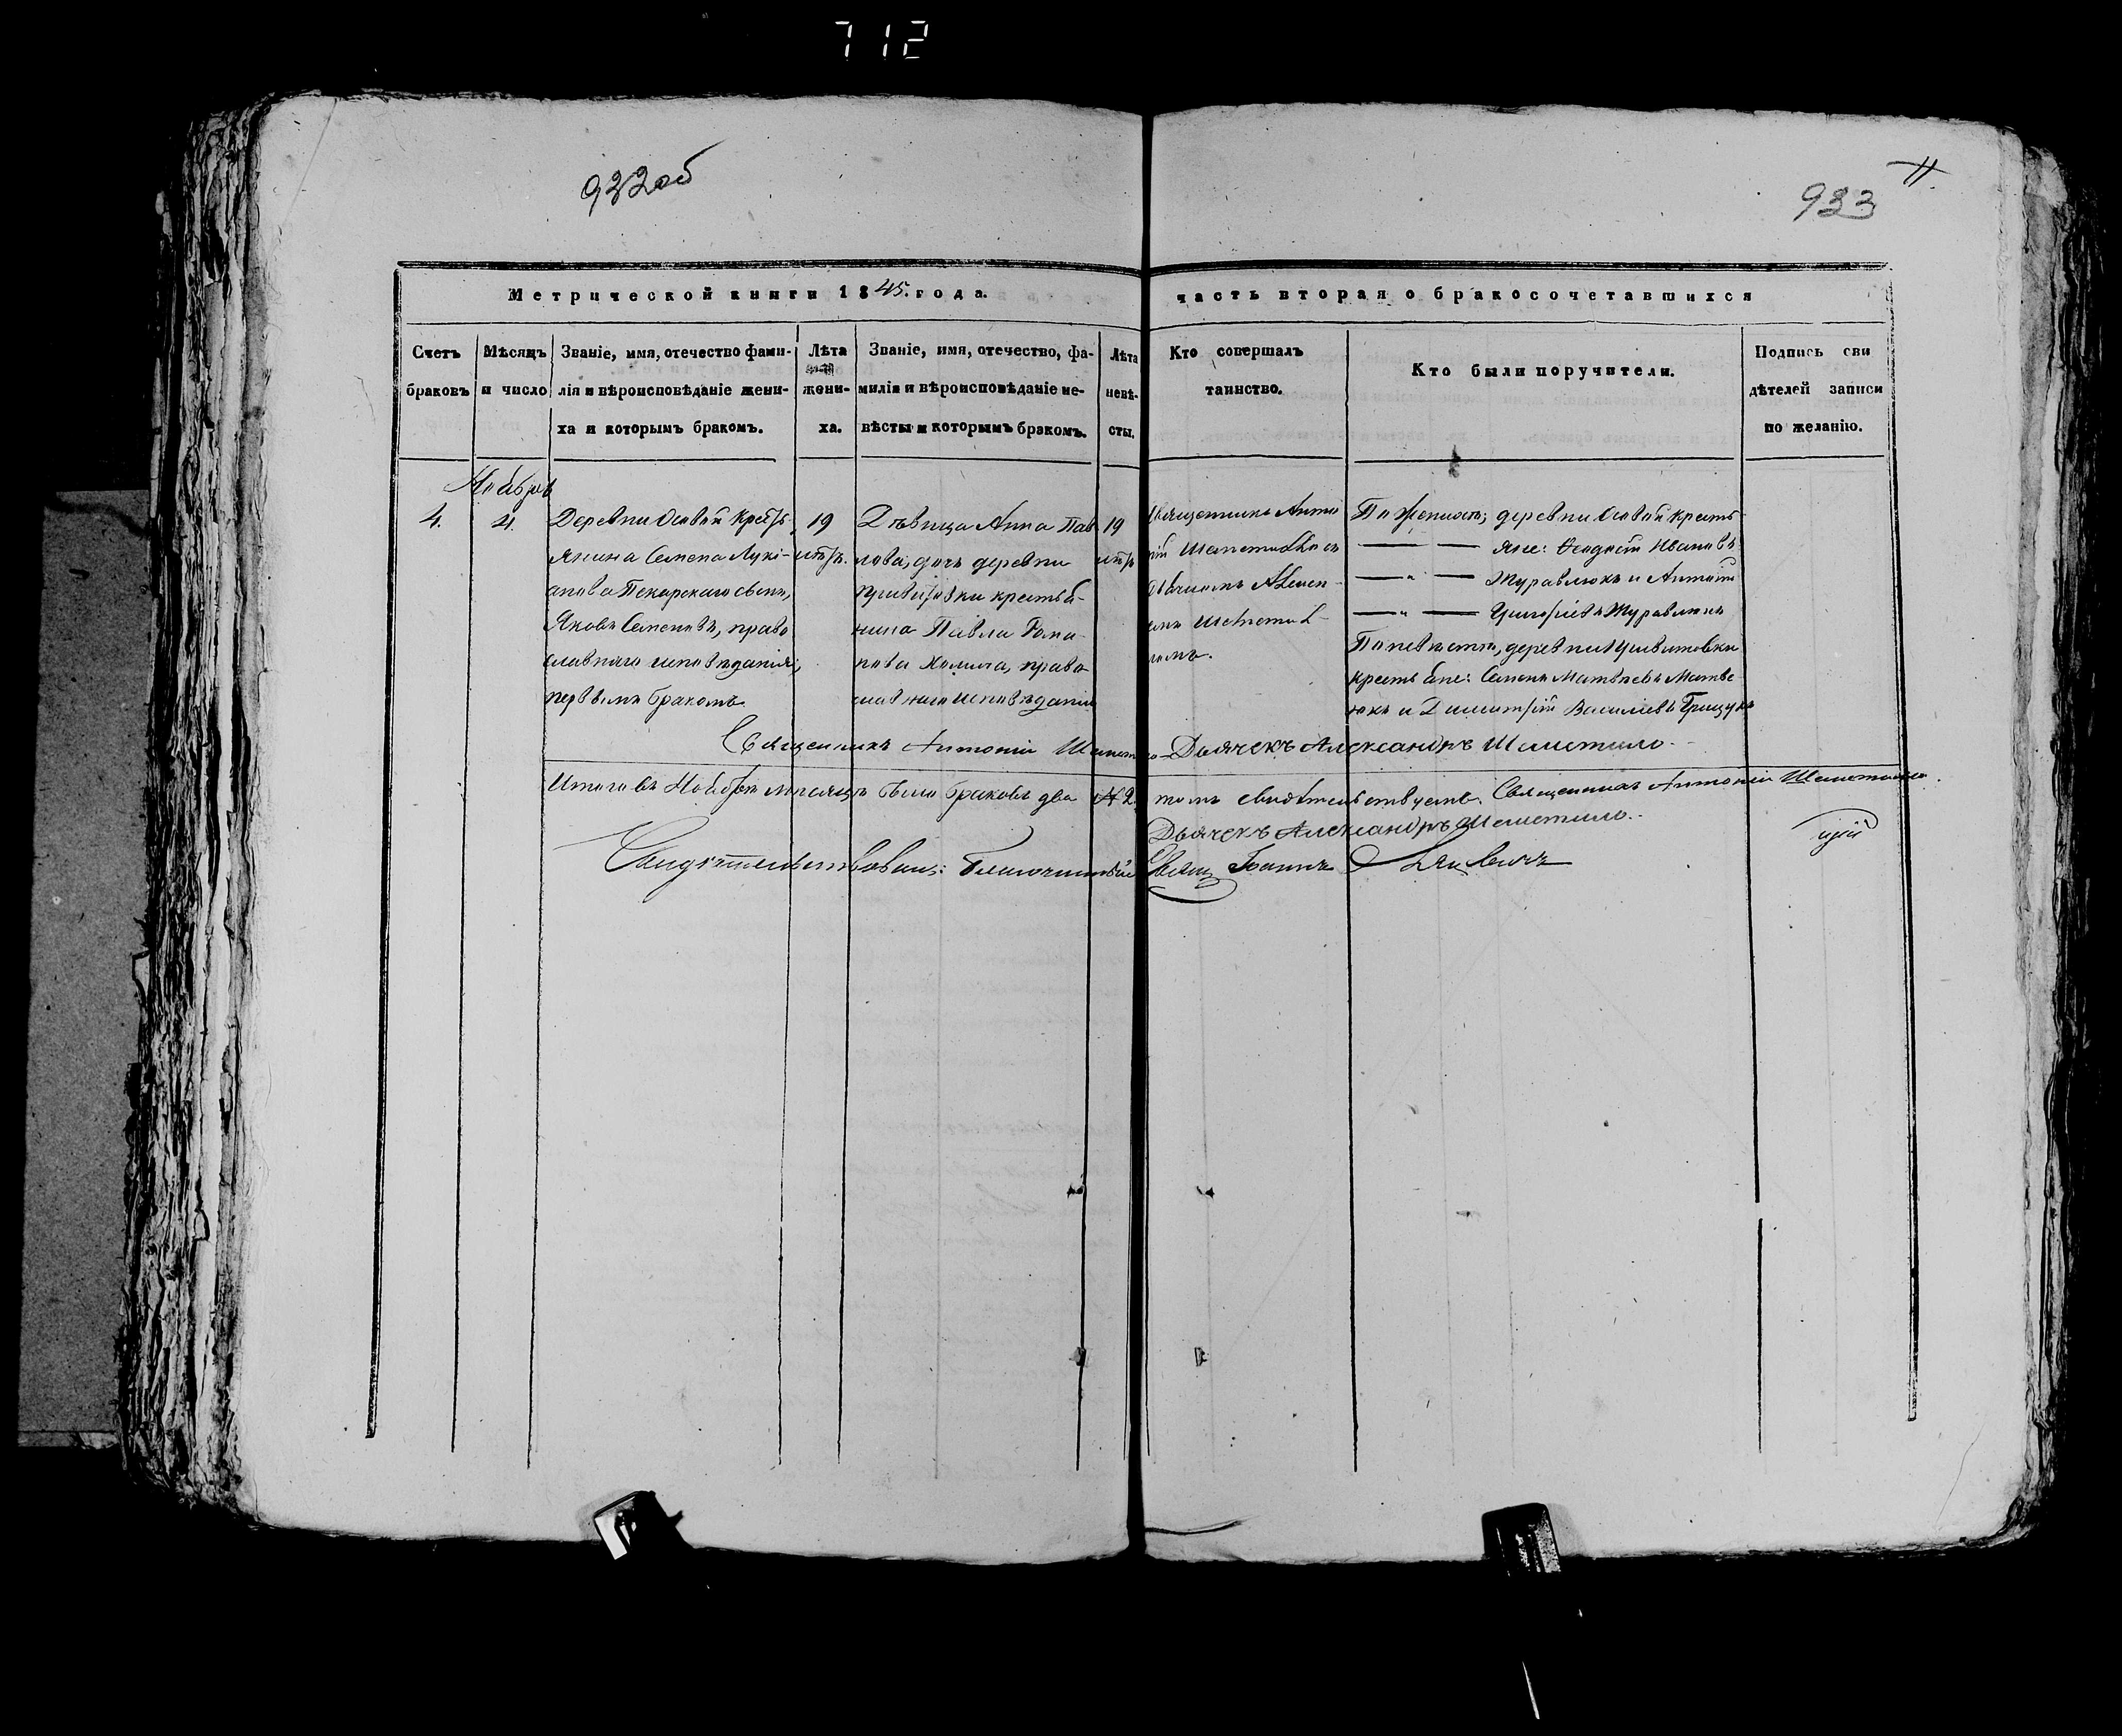 712
932об
933
11.
Метрической книги 1845. года.
часть вторая о бракосочетавшихся
Счетъ браковъ
Мѣсяцъ и число
Званіе, имя, отечество фами-
лія и вѣроисповѣданіе жени-
ха и которымъ бракомъ.
Лѣта жени-
ха.
Званіе, имя, отечество, фа-
милія и вѣроисповѣданіе не-
вѣсты и которымъ бракомъ.
Лѣта невѣ-
сты.
Кто совершалъ
таинство.
Кто были поручители.
Подпись сви
дѣтелей записи
по желанію.
Ноабря
4.
4.
Деревни Осовой Крестъ
янина Семена Лукі-
анова Пекарскаго сынъ,
Яковъ Семеновъ, право
славнаго исповѣданія,
первымъ бракомъ
19
Дѣвица Анна Пав
лова, дочь деревни
крестья-
нина Павла Рома-
нова Хомича, право
славнаго исповѣданія
19
Священникъ Анто
ній
Дьячкомъ
ломъ.
По женихѣ, деревни Осовой кресть
яне: Ѳеодосій Ивановъ
Журавлюкъ и Антоній
Григоріевъ Журавлюкъ
По невѣстѣ, деревни
крестьяне: Семенъ Матвѣевъ Матве
юкъ и Димитрій Василіевъ Грицукъ
Священникъ Антоній Шеметило Дьячекъ Александръ Шеметило.
Итого въ Ноабрѣ мѣсяцѣ было браковъ два № 2. томъ свидѣтельствуемъ. Священникъ Антоній Шеметилло.
Дьячекъ Александръ Шеметило.
Свидѣтельствовалъ: Благочинный Свящ Іоаннъ